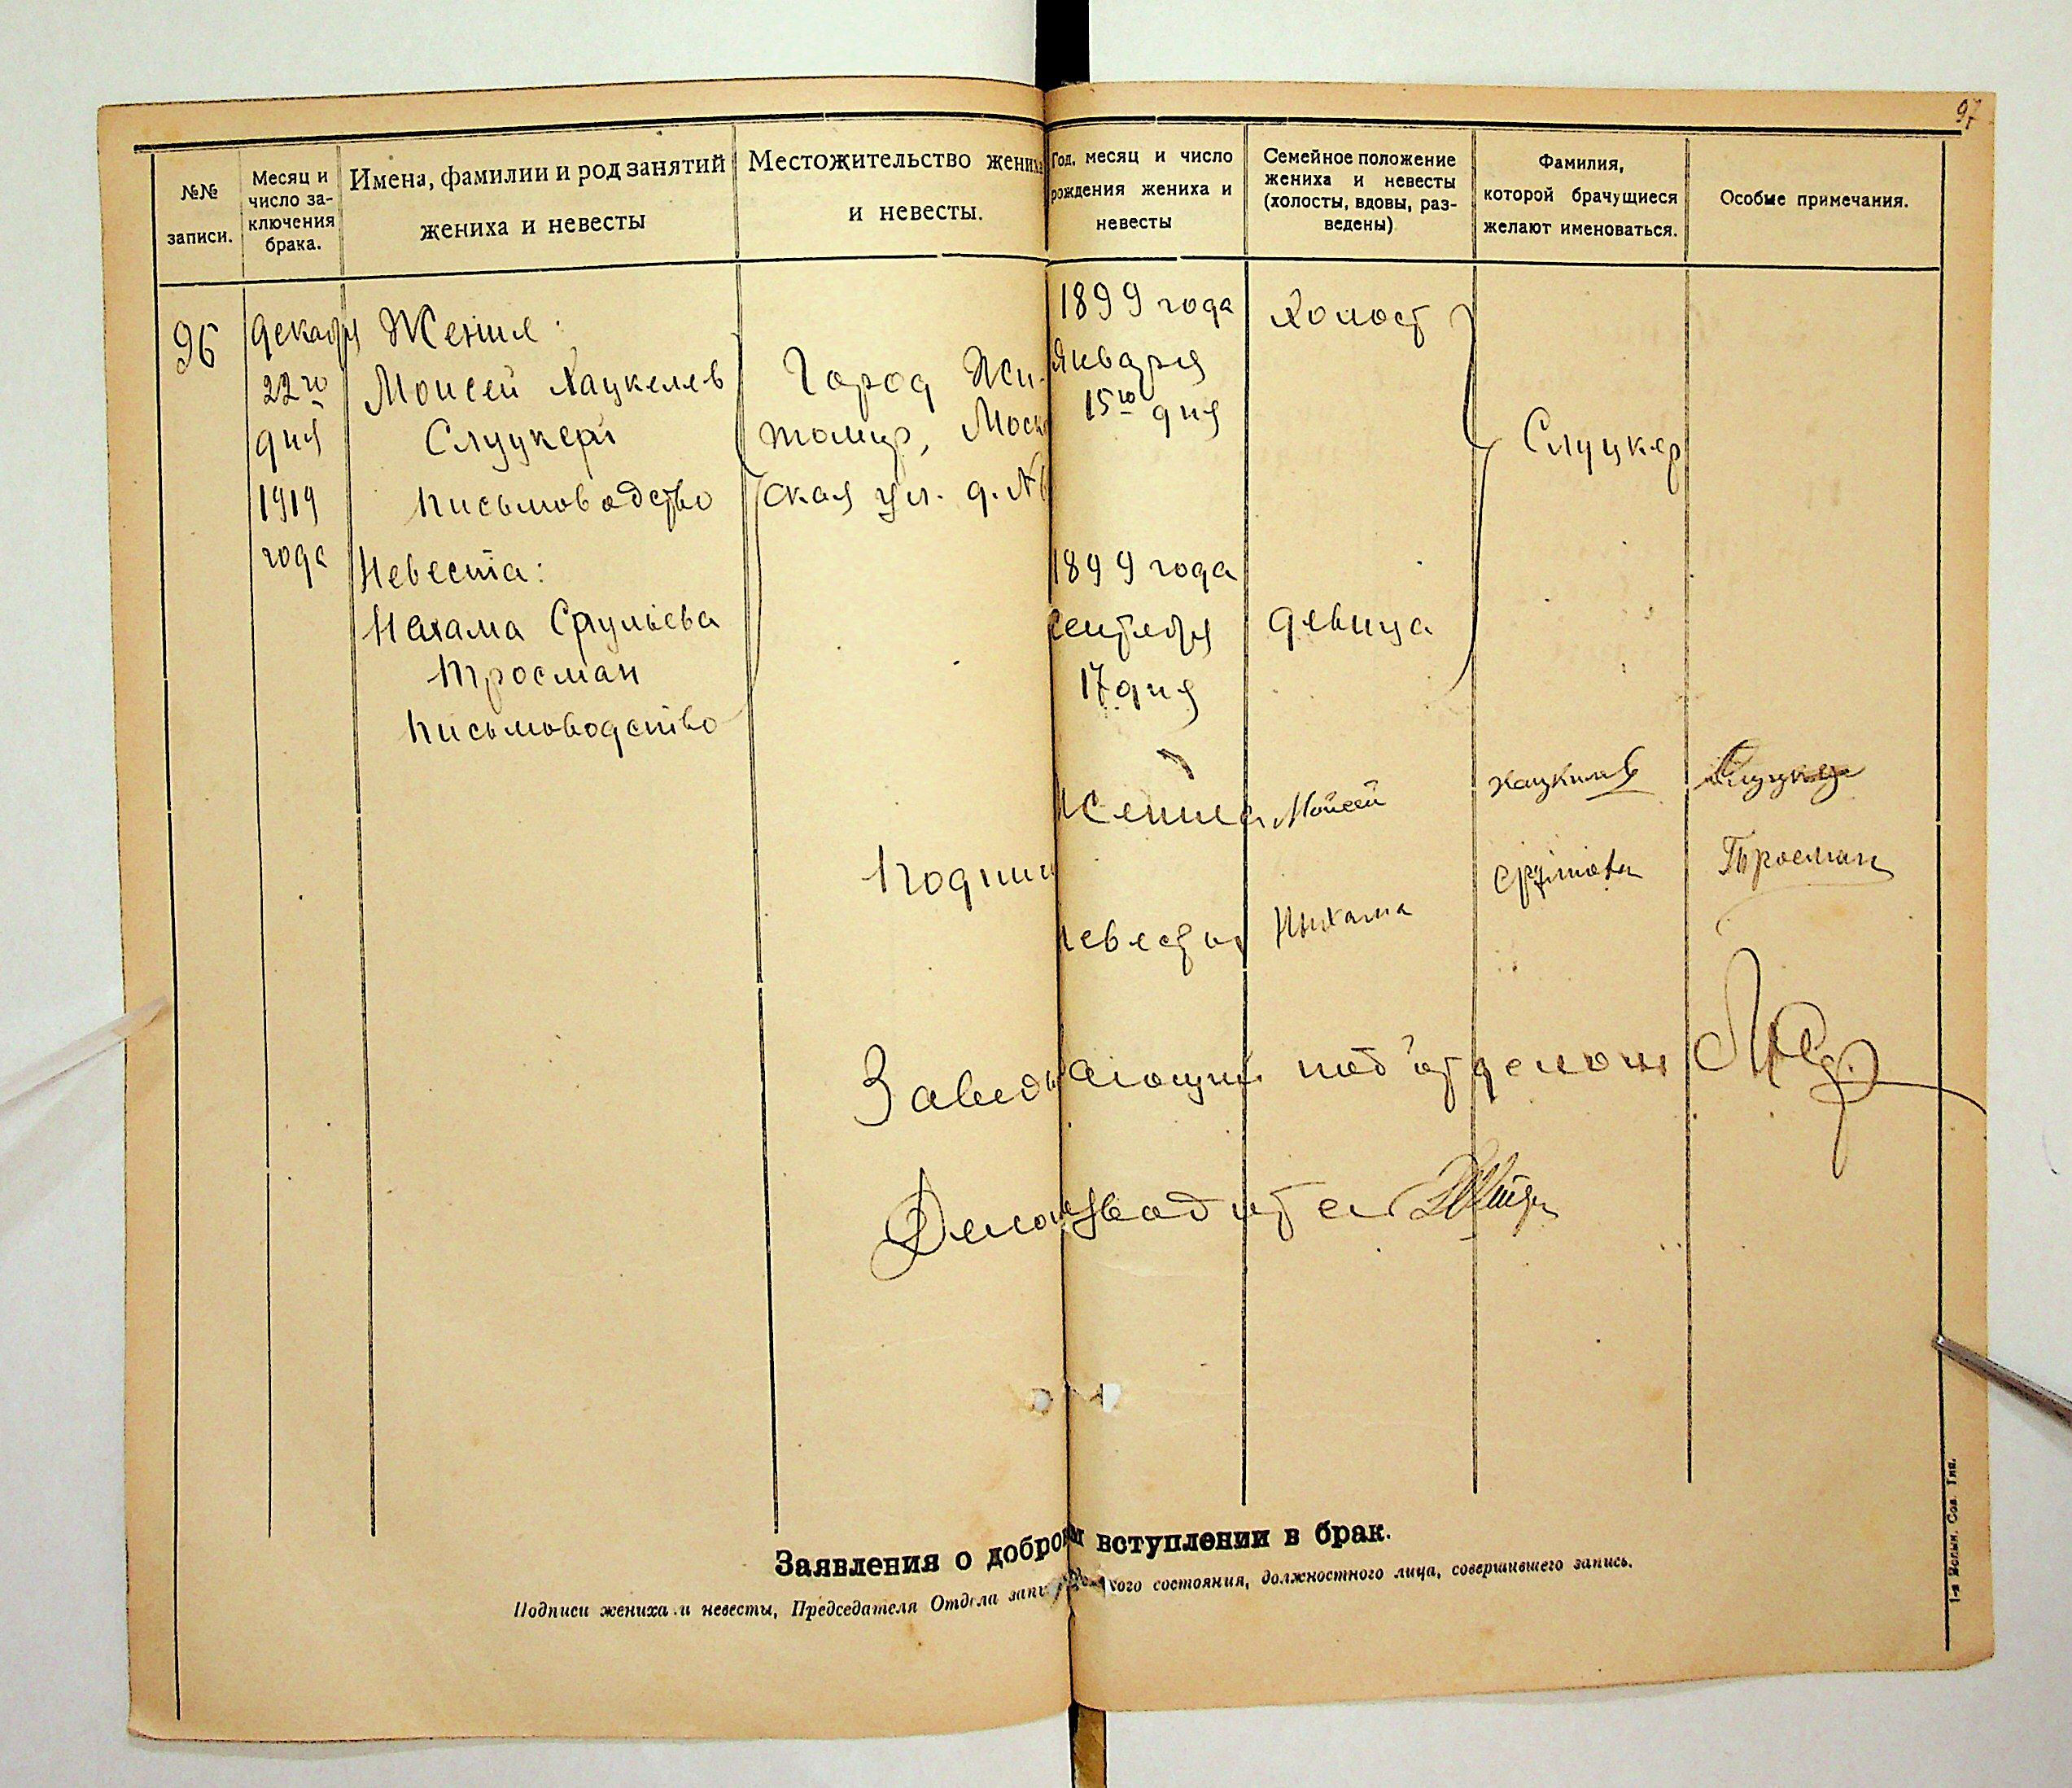 97
№№ записи.
Месяц и число заключения брака.
Имена, фамилии и род занятий
жениха и невесты
Местожительство жениха
и невесты.
Год, месяц и число
рождения жениха и
невесты
Семейное положение
жениха и невесты
(холосты, вдовы, раз-
ведены)
Фамилия,
которой брачущиеся
желают именоваться.
Особые примечания.
96
Декабря
22го
дня
1919
года
Жених:
Моисей Хацкелев
Слуцкер
письмоводство
Невеста:
Нехама Срулиева
Тросман
письмоводство
Город Жи-
томир, Моск
ская ул. д. №
1899 года
Января
15го дня
1899 года
Сентября
17 дня
Холост
девица
Слуцкер
Жениха Моисей Хацкелев Слуцкер
Подписи
невесты Нихама Срулиева Тросман
Заведывающий подотделом
Делопроизводитель
Заявления о добро вступлении в брак.
Подписи жениха и невесты, Председателя Отдела запи кого состояния, должностного лица, совершившего запись.
1-я Волын. Сов. Тип.